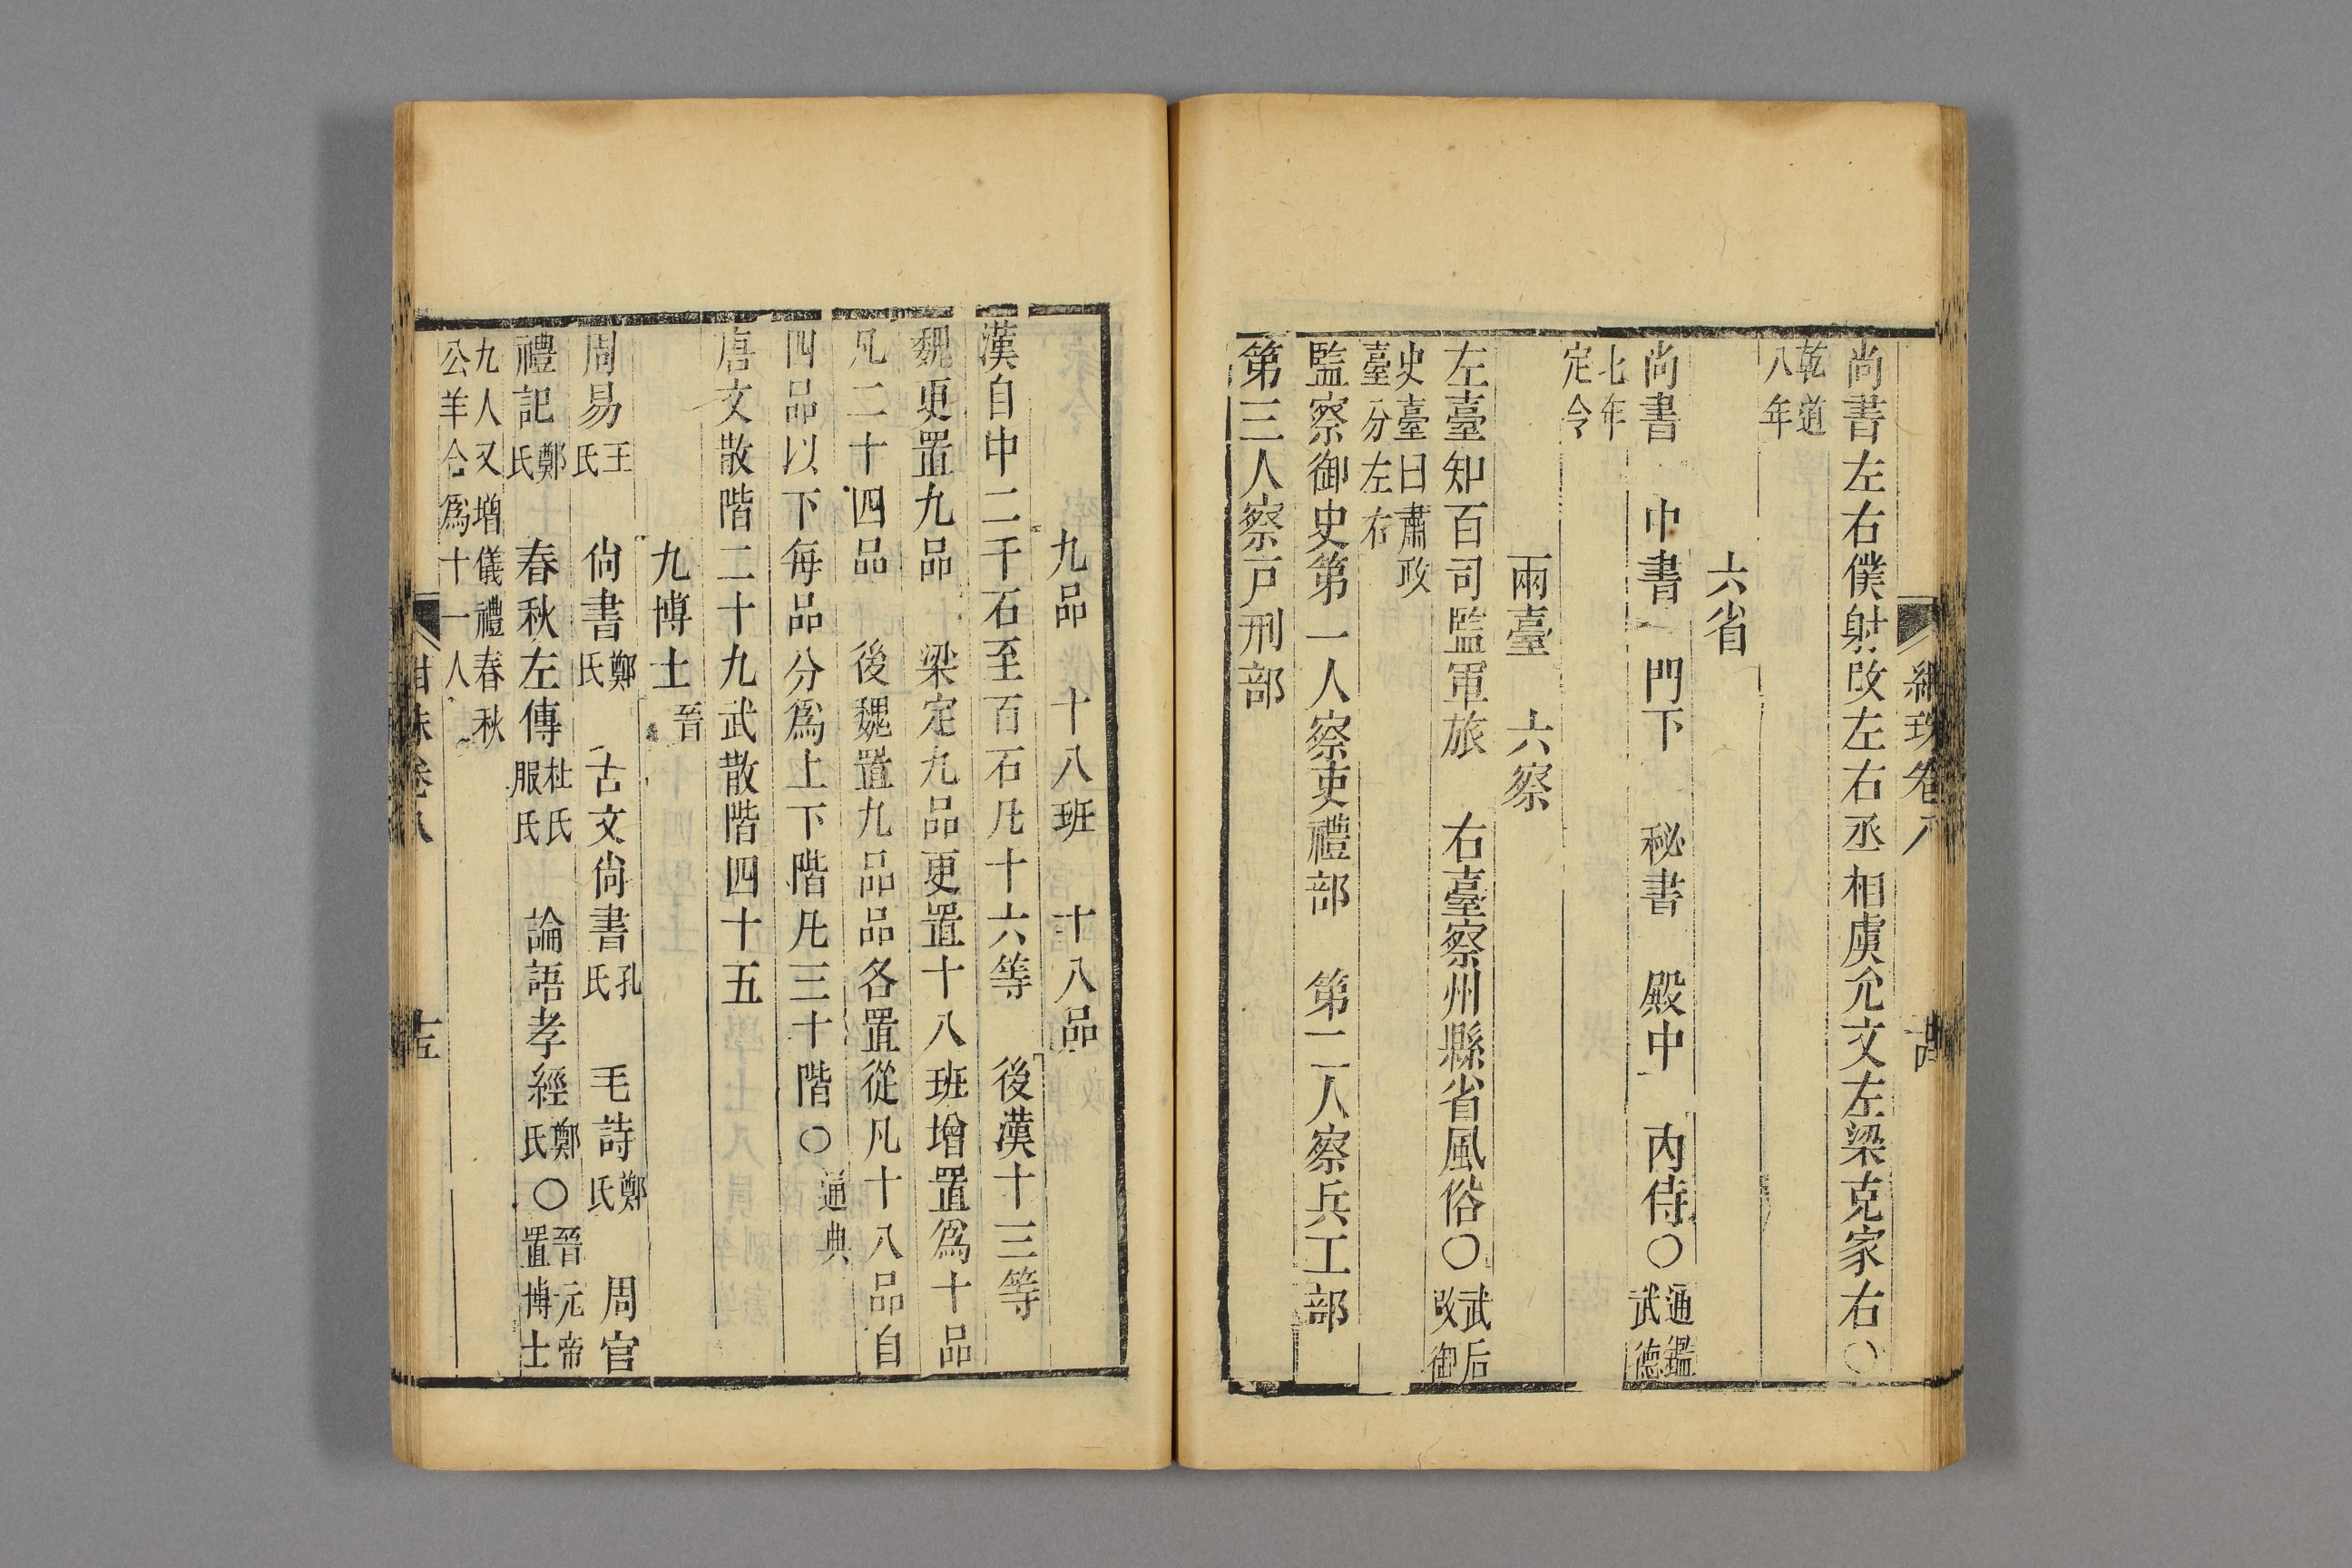 尚書左右僕射改左右丞相虞允文左梁克家右○
乾道
八年
六省
尚書 中書 門下 秘書 殿中 內侍○通鑑武德
七年
定令
兩臺 六察
左臺知百司監軍旅 右臺察州縣省風俗○武后改御
史臺曰肅政
臺分左右
監察御史第一人察吏禮部 第二人察兵工部
第三人察戸刑部
九品 十八班 十八品
漢自中二千石至百石凡十六等 後漢十三等
魏更置九品 梁定九品更置十八班增置爲十品
凡二十四品 後魏置九品品各置從凡十八品自
四品以下每品分爲上下階凡三十階○通典
唐文散階二十九武散階四十五
九博士晉
周易王氏 尙書鄭氏 古文尙書孔氏 毛詩鄭氏 周官
禮記鄭氏 春秋左傳杜氏服氏 論語孝經鄭氏○晉元帝置博士
九人又增儀禮春秋
公羊合爲十一人